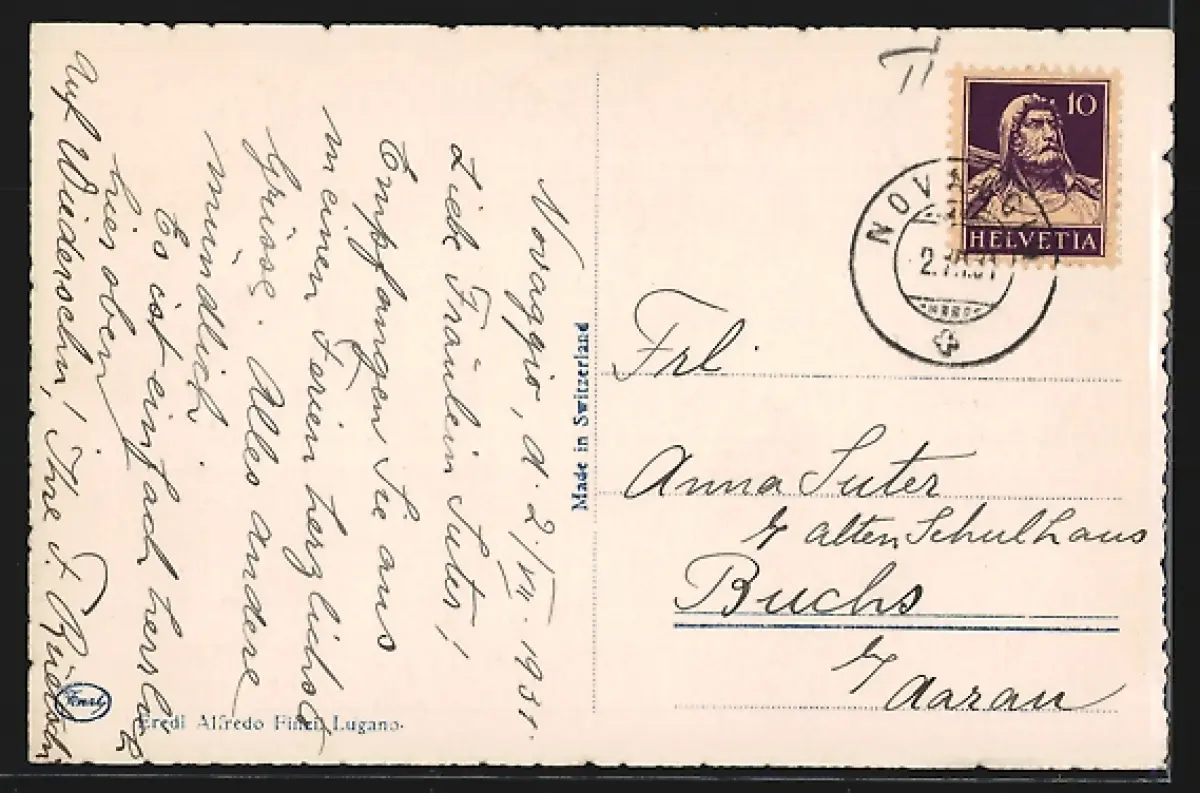 Novaggio, d. 2./VII. 1931.
Lieb. Fräulein Suter!
Empfangen Sie aus
meinen Ferien herzlichste
Grüsse. Alles andere
mündlich.
Es ist einfach herrlich
hier oben.
Auf Wiedersehn! Ihre F.
Made in Switzerland
Eredi Alfredo Finzi, Lugano.
10
HELVETIA
2.VII.31
Frl.
Anna Suter
b/ alten Schulhaus
Buchs
b/ Aarau